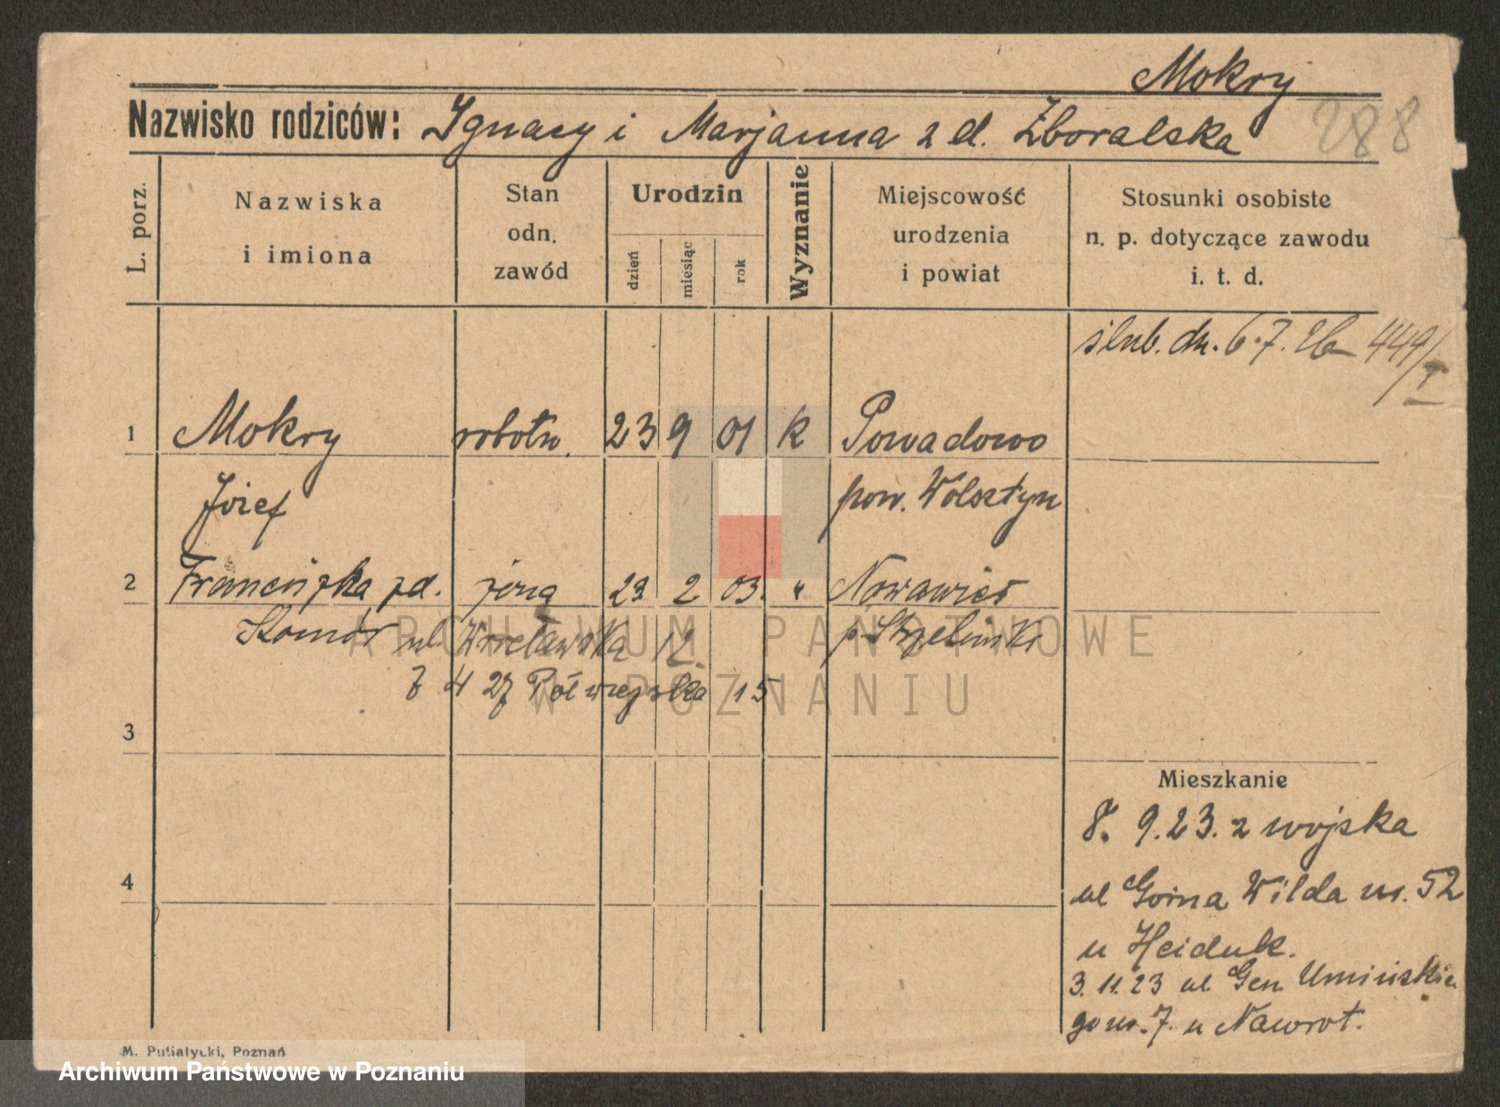 Mokry
Nazwisko rodziców: Ignacy i Marjanna z d. Zboralska 288
L. porz.
Nazwiska i imiona
Stan odn. zawód
Urodzin
dzień miesiąc rok
Wyznanie
Miejscowość urodzenia i powiat
Stosunki osobiste n. p. dotyczące zawodu i. t. d.
ślub. dn. 6.7.26 449/I
1 Mokry robotn. 23 9 01 k Powadowo
Józef pow. Wolsztyn
2 Franciszka zd. żona 23 2 03. " Nowawieś
ul Wrocławska 12 p. Strzeliński
27 Półwiejska 15
3
4
Mieszkanie
8. 9.23. z wojska
ul Górna Wilda nr. 52
u Heiduk.
3.11.23 ul. Gen. Umińskie
go nr. 7. u Nawrot.
M. Putiatycki, Poznań
ARCHIWUM PAŃSTWOWE
W POZNANIU
Archiwum Państwowe w Poznaniu